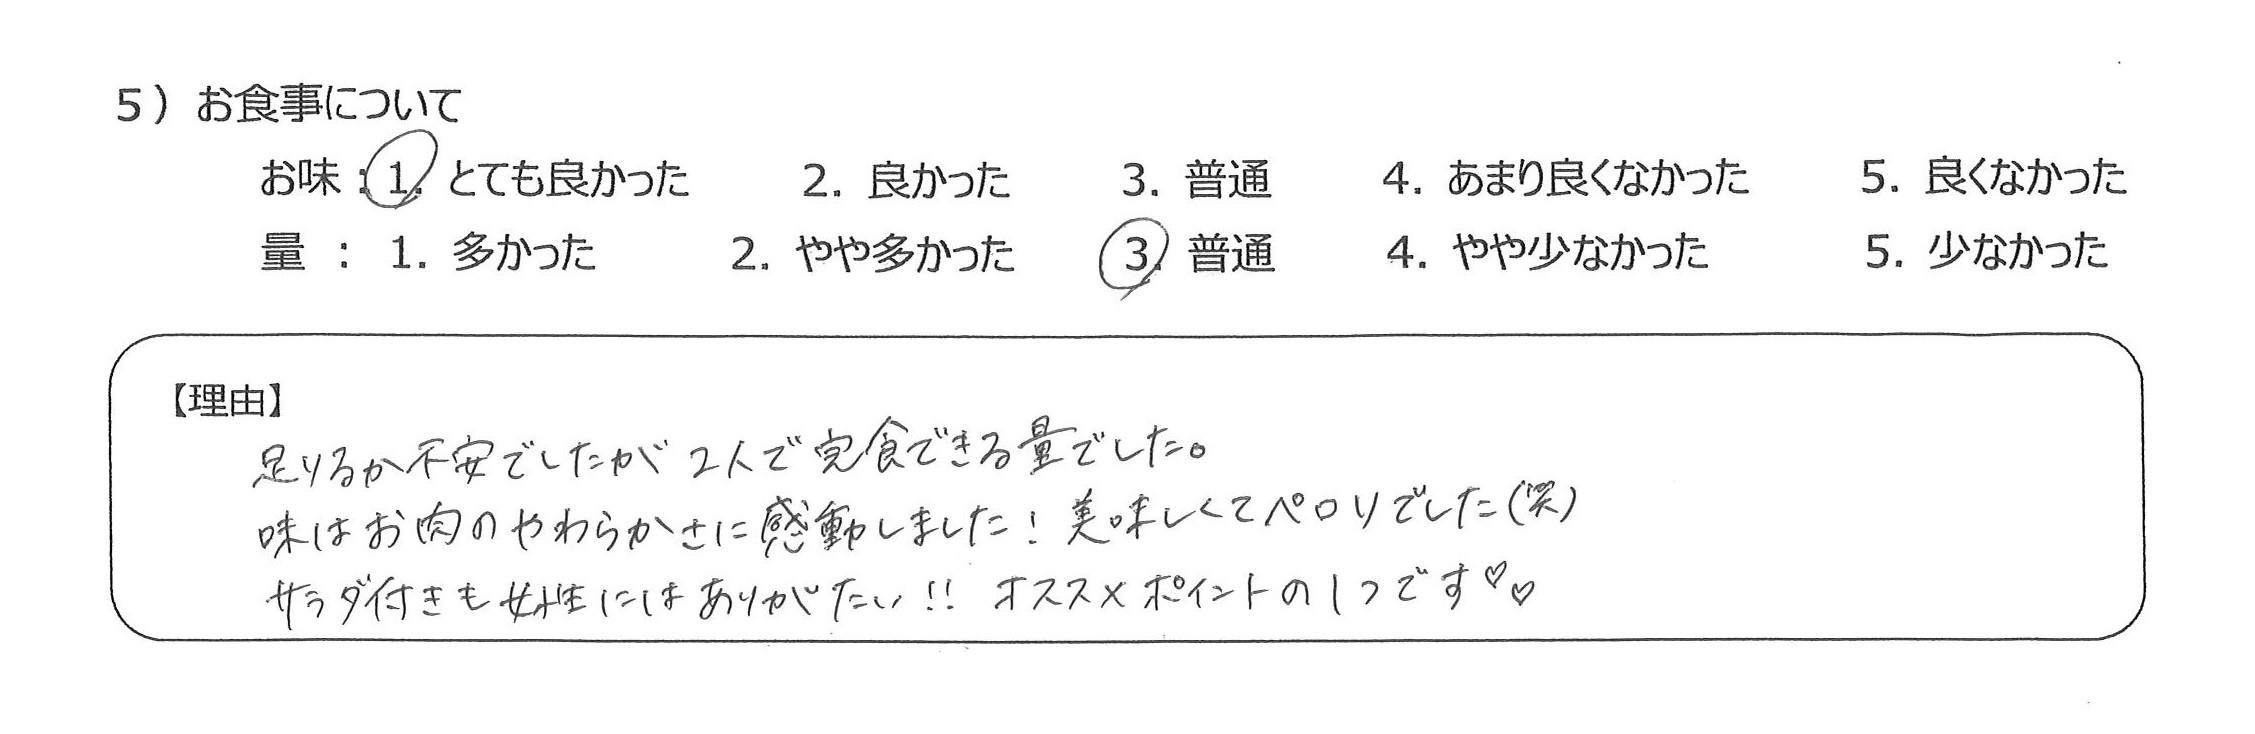 5）お食事について
お味：1. とても良かった 2. 良かった 3. 普通 4. あまり良くなかった 5. 良くなかった
量 ： 1. 多かった 2. やや多かった 3. 普通 4. やや少なかった 5. 少なかった
【理由】
足りるか不安でしたが2人で完食できる量でした。
味はお肉のやわらかさに感動しました！美味しくてペロリでした(笑)
サラダ付きも女性にはありがたい!! オススメポイントの1つです♡♡